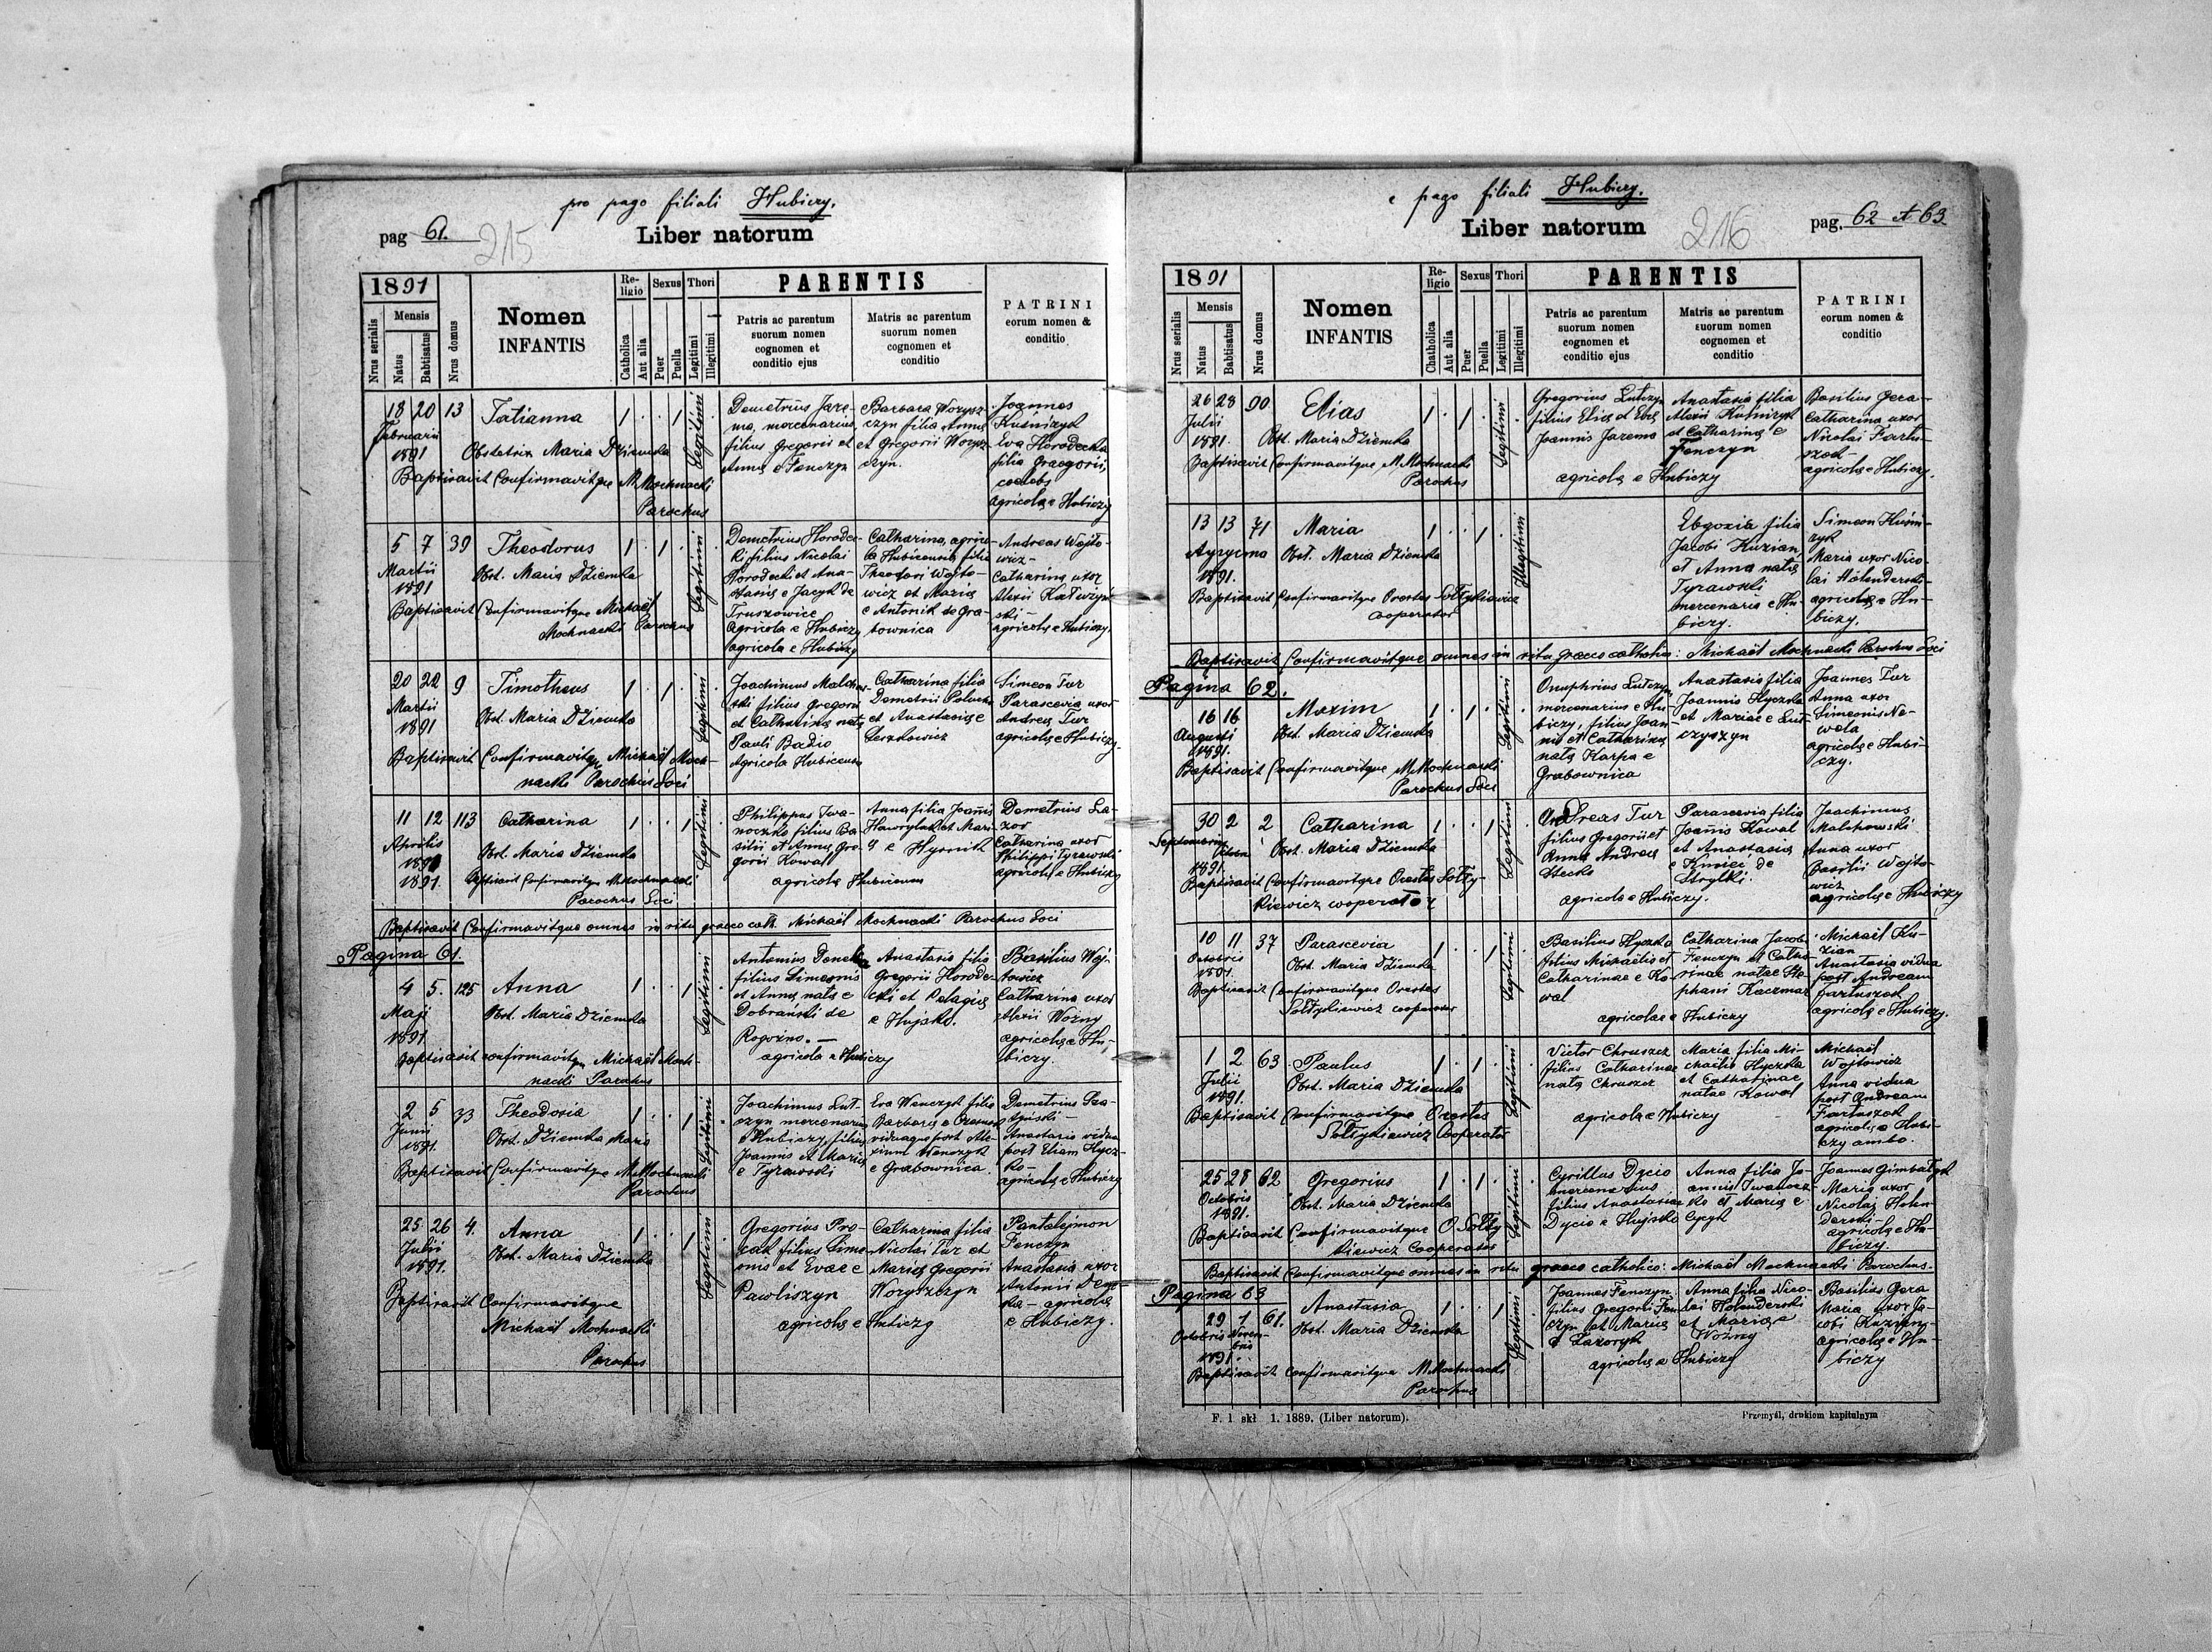 pro pago filiali Hubiczy.
pag 61. 215
Liber natorum
1891
Nrus serialis
Mensis
Natus
Babtisatus
Nrus domus
Nomen
INFANTIS
Re-
ligio
Catholica
Aut alia
Sexus
Puer
Puella
Thori
Legitimi
Illegitimi
PARENTIS
Patris ac parentum
suorum nomen
cognomen et
conditio ejus
Matris ac parentum
suorum nomen
cognomen et
conditio
PATRINI
eorum nomen &
conditio
18 20 13 Tatianna 1 . . 1 Legitimi
Februarii
1891
Obstetrix Maria Dziemka
Baptisavit Confirmavitque M. Mochnacki
Parochus
Demetrius Jare-
ma, mercenarius,
filius Gregorii et
Anna e Fenczyn
Barbara Worysz-
czyn filia Annae
et Gregorii Worysz-
czyn.
Joannes
Kuśnizyk
Eva Horodecka
filia Graegorii,
coelebs
agricolae e Hubiczy
5 7 39 Theodorus 1 . 1 . Legitimi
Martii
1891
Obst. Maria Dziemka
Baptisavit Confirmavitque Michaël
Mochnacki Parochus
Demetrius Horodec-
ki filius Nicolai
Horodecki et Ana-
stasiae e Jacyk de
Truszowice
Agricola e Hubiczy
agricola e Hubiczy
Catharina, agrico-
la Hubicensis filia
Theodori Wojto-
wicz et Mariae
e Antonik de Gra-
bownica
Andreas Wojto-
wicz -
Catharina uxor
Alexii Kałwzyn-
ski -
agricolae e Hubiczy.
20 22 9 Timotheus 1 . 1 . Legitimi
Martii
1891
Obst. Maria Dziemka
Baptisavit Confirmavitque Michaël Moch-
nacki Parochus Loci
Joachimus Malchow-
ski filius Gregorii
et Catharina nata
Pauli Badio
Agricola Hubicensis
Catharina filia
Demetrii Paluch
et Anastasiae e
Leszkowicz
Simeon Tur
Parascevia uxor
Andreae Tur
agricolae e Hubiczy.
11 12 113 Catharina 1 . . 1 Legitimi
Aprilis
1891
1891
Obst. Maria Dziemka
Baptisavit Confirmavitque M. Mochnacki
Parochus Loci
Philippus Iwa-
noczko filius Ba-
silii et Annae Gre-
gorii Kowal
agricolae Hubicenses
Anna filia Joannis
Hawrylak et Mari-
ae e Hyrnik
Demetrius La-
zor
Catharina uxor
Philippi Tyrawski
agricolae e Hubiczy
Baptisavit Confirmavitque omnes in ritu graeco cath. Michaël Mochnacki Parochus Loci
Pagina 61.
4 5. 125 Anna 1 . . 1 Legitimi
Maji
1891
Obst. Maria Dziemka
Baptisavit confirmavitque Michaël Moch-
nacki Parochus
Antonius Deneka
filius Simeonis
et Annae nata e
Dobrański de
Rogożno. -
agricola e Hubiczy
Anastasia filia
Gregorii Horode-
cki et Pelagiae
e Hujsko.
Basilius Woj-
towicz
Catharina uxor
Alexii Woźny
agricolae e Hu-
biczy.
2 5 33 Theodosia 1 . . 1 Legitimi
Junii
1891.
Obst. Dziemka Maria
Baptisavit Confirmavitque M. Mochnacki
Parochus
Joachimus Lut-
czyn mercenarius
e Hubiczy, filius
Joannis et Mariae
e Tyrawski
Eva Wenczyk filia
Barbarae e
viduaque post Ale-
xium Wenczyk
e Grabownica.
Demetrius
Anastasia vidua
post Eliam Hycz-
ko -
agricolae e Hubiczy
25 26 4. Anna 1 . . 1 Legitimi
Julii
1891.
Obst. Maria Dziemka
Baptisavit Confirmavitque
Michaël Mochnacki
Parochus
Gregorius Pro-
cak filius Sime-
onis et Evae e
Pawliszyn
agricolae e Hubiczy
Catharina filia
Nicolai Tur et
Mariae Gregorii
Woryszczyn
Pantelejmon
Fenczyn
Anastasia uxor
Antonii Dene-
ka - agricolae
e Hubiczy.
e pago filiali Hubiczy.
Liber natorum
216
pag. 62 et 63
1891
Nrus serialis
Mensis
Natus
Babtisatus
Nrus domus
Nomen
INFANTIS
Re-
ligio
Chatholica
Aut alia
Sexus
Puer
Puella
Thori
Legitimi
Illegitimi
PARENTIS
Patris ac parentum
suorum nomen
cognomen et
conditio ejus
Matris ac parentum
suorum nomen
cognomen et
conditio
PATRINI
eorum nomen &
conditio
26 28 90 Elias 1 . 1 . Legitimi
Julii
1891.
Obst. Maria Dziemka
Baptisavit Confirmavitque M. Mochnacki
Parochus
Gregorius Lutczyn
filius Eliae et Evae
Joannis Jarema
agricolae e Hubiczy
Anastasia filia
Alexii Kuśnizyk
et Catharinae e
Fenczyn
Basilius Gera -
Catharina uxor
Nicolai Fartu-
szok -
agricolae e Hubiczy.
13 13 71 Maria 1 . . 1 Illegitimi
1891.
Obst. Maria Dziemka
Baptisavit Confirmavitque Orestes Sołtykiewicz
cooperator
filia
Jacobi Kuzian
et Anna natae
Tyrawski
mercenaria e Hu-
biczy.
Simeon Kuśni-
zyk
Maria uxor Nico-
lai Holenderski -
agricolae e Hu-
biczy.
Baptisavit Confirmavitque omnes in ritu graeco catholico: Michaël Mochnacki Parochus Loci
Pagina 62.
16 16 Maxim 1 . 1 . Legitimi
Augusti
1891.
Obst. Maria Dziemka
Baptisavit Confirmavitque M. Mochnacki
Parochus Loci
Onuphrius Lutczyn
mercenarius e Hu-
biczy, filius Joan-
nis et Catharinae
natae Karpa e
Grabownica
Anastasia filia
Joannis Hyczko
et Mariae e Lut-
czyszyn
Joannes Tur
Anna uxor
Simeonis Ne-
wola
agricolae e Hubi-
czy.
30 2 2 Catharina 1 . . 1 Legitimi
Septembris
1891
Obst. Maria Dziemka
Baptisavit Confirmavitque Orestes Sołty-
kiewicz cooperator
Andreas Tur
filius Gregorii et
Anna Andreae
Stecko
agricolae e Hubiczy.
Parascevia filia
Joannis Kowal
et Anastasiae
e Kmieć de
Strylki.
Joachimus
Malchowski
Anna uxor
Basilii Wojto-
wicz
agricolae e Hubiczy
10 11 37 Parascevia 1 . . 1 Legitimi
Octobris
1891.
Obst. Maria Dziemka
Baptisavit Confirmavitque Orestes
Sołtykiewicz cooperator
Basilius Hyczko
filius Michaëlis et
Catharinae e Ko-
wal
agricolae e Hubiczy
Catharina Jacobi
Fenczyn et Catha-
rinae natae Ste-
phani Kaczmar
Michaël Ku-
zian
Anastasia vidua
post Andream
Fartuszok
agricolae e Hubiczy.
1 2 63 Paulus 1 . 1 . Legitimi
Julii
1891.
Obst. Maria Dziemka
Baptisavit Confirmavitque Orestes
Sołtykiewicz Cooperator
Victor Chruszcz
filius Catharinae
nata Chruszcz
agricolae e Hubiczy
Maria filia Mi-
chaëlis Hyczko
et Catharinae
natae Kowal
Michaël
Wojtowicz
Anna vidua
post Andream
Fartuszok
agricolae e Hubi-
czy ambo.
25 28 62 Gregorius 1 . 1 . Legitimi
Octobris
1891.
Obst. Maria Dziemka
Baptisavit Confirmavitque O. Sołty
kiewicz Cooperator
Cyrillus Dycio
mercenarius
filius Anastasiae
Dycio e Hujsko
Anna filia Jo-
annis Iwanocz-
ko et Mariae e
Cycyk
Joannes Gimbatyk
Maria uxor
Nicolai Holen-
derski -
agricolae e Hu-
biczy.
Baptisavit Confirmavitque omnes in ritu graeco catholico: Michaël Mochnacki Parochus.
Pagina 63
29 1 61. Anastasia 1 . . 1 Legitimi
Octobris Novem-
bris
1891.
Obst. Maria Dziemka
Baptisavit Confirmavitque M. Mochnacki
Parochus
Joannes Fenczyn
filius Gregorii Fen-
czyn et Mariae
e Lazoryk
agricolae e Hubiczy
Anna filia Nico-
lai Holenderski
et Mariae e
Woźny
Basilius Gera
Maria uxor Ja-
cobi
agricolae e Hu-
biczy
F. 1 skł 1. 1889. (Liber natorum).
Przemyśl, drukiem kapitulnym